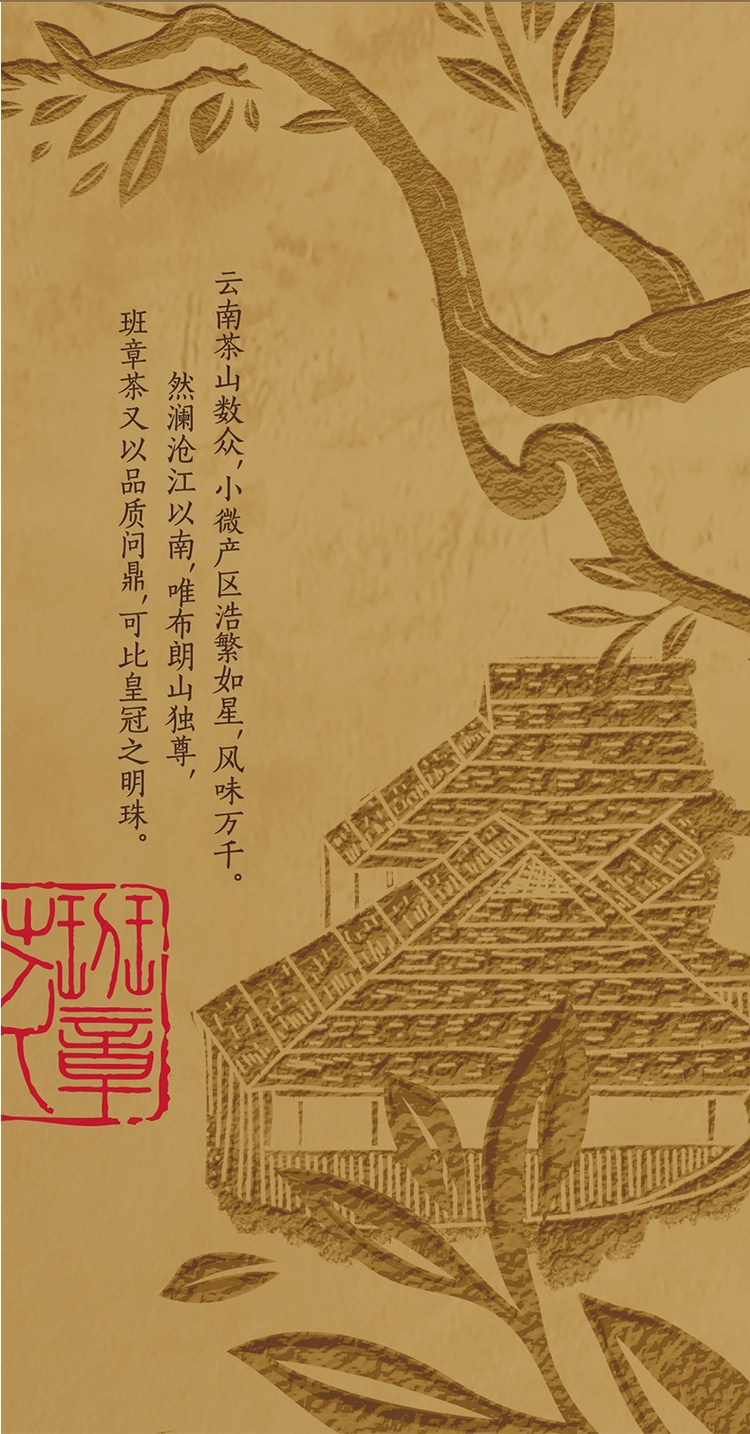 云南茶山数众，小微产区浩繁如星，风味万千。
然澜沧江以南，唯布朗山独尊，
班章茶又以品质问鼎，可比皇冠之明珠。
班章